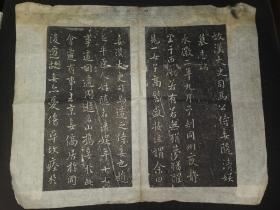 故漢太史司馬公侍妾隨清娛
墓誌銘
永徽二年九月予刺同州夜靜
坐于西廳若有若無猶夢猶醒
見一女子高髻盛妝泣謂余曰
妾漢太史司馬遷之侍妾也趙
之平原人姓隨名清娛年十七
事遷因遷周遊名山携妾於此
會遷有事去京妾僑居於同
後遷故妾亦憂傷尋故瘞於